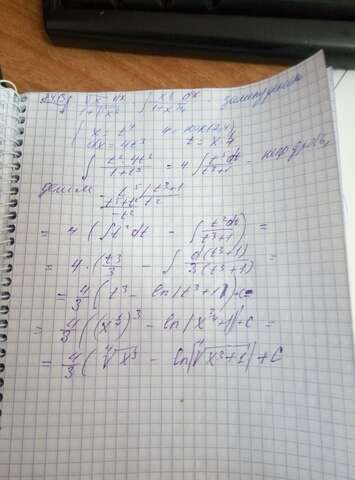 ∫ √x dx / (1+⁴√x³) ∫ x^½ dx / (1+x^¾) -
{ x = t⁴ 4 = НОК(2,4)
dx = 4t³ t = x^¼
∫ t² 4t³ / (1+t³) = 4 ∫ t⁵ dt / (t³+1) -
делим - t⁵ | t³+1
t⁵+t² | t²
-t²
= 4 ( ∫ t² dt - ∫ t² dt / (t³+1) ) =
= 4 · ( t³/3 - ∫ d(t³+1) / 3(t³+1) =
= 4/3 ( t³ - ln|t³+1| ) + c =
= 4/3 ( (x^¼)³ - ln|x^¾+1| + C =
= 4/3 ( ⁴√x³ - ln|⁴√x³+1| + C